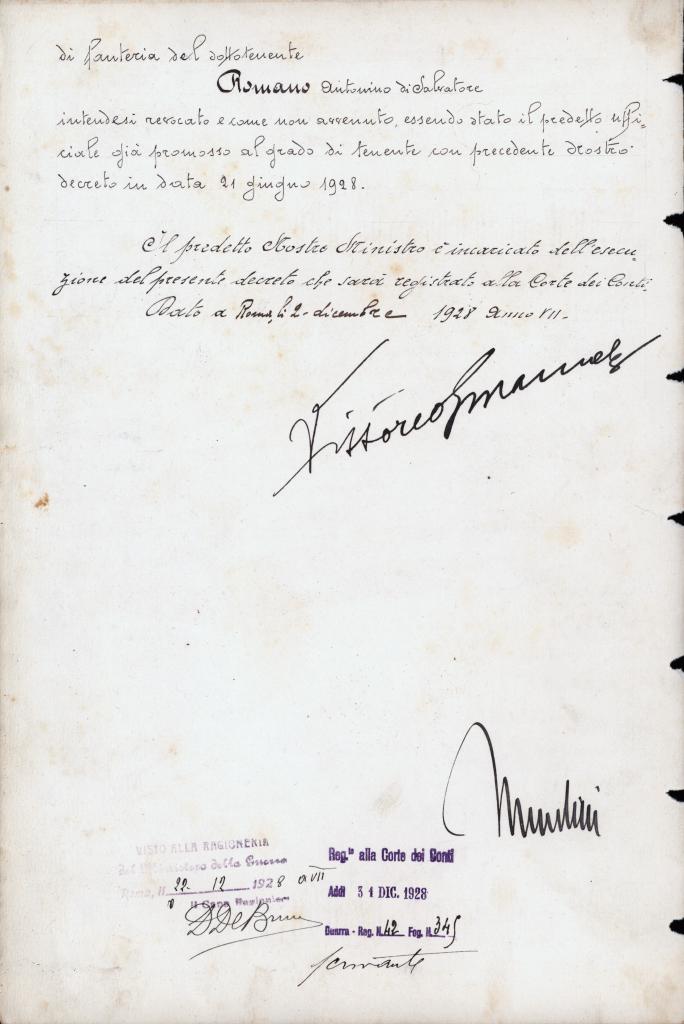 di fanteria del sottotenente
Romano Antonino di Salvatore
intendesi revocato e come non avvenuto, essendo stato il predetto uffi=
ciale già promosso al grado di tenente con precedente Nostro
decreto in data 21 giugno 1928.
Il predetto Nostro Ministro è incaricato dell'esecu-
zione del presente decreto che sarà registrato alla Corte dei Conti.
Dato a Roma, lì 2 - dicembre 1928 Anno VII -
Vittorio Emanuele
Mussolini
VISTO ALLA RAGIONERIA
del Ministero della Guerra
Roma, li 22 - 12 1928 a VII
Il Capo Ragioniere
Reg.to alla Corte dei Conti
Addì 31 DIC. 1928
Guerra - Reg. N. 42 Fog. N. 345